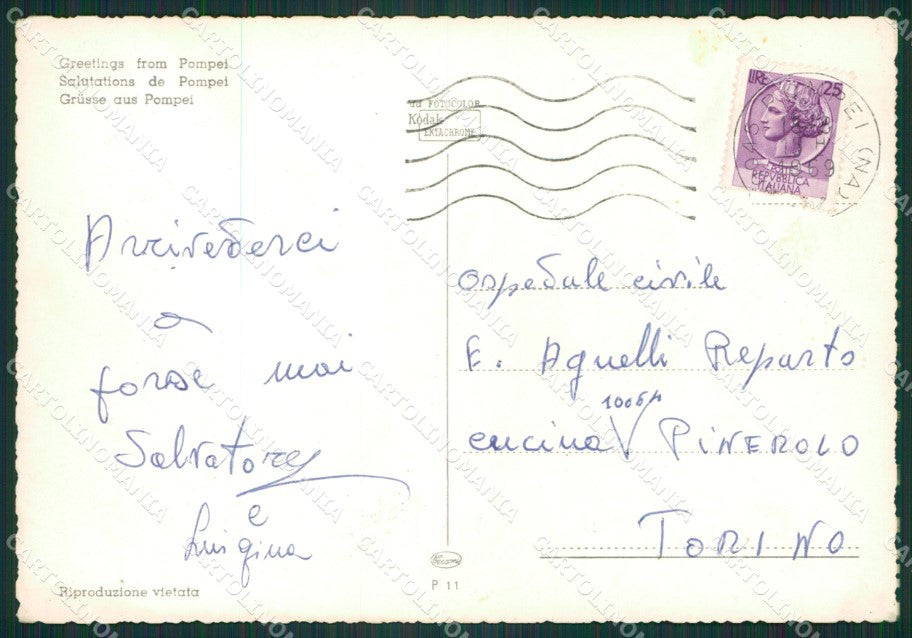 Greetings from Pompei
Salutations de Pompei
Grüsse aus Pompei
Arrivederci
a
forse mai
Salvatore
e
Luigina
Riproduzione vietata
da FOTOCOLOR
Kodak
EKTACHROME
LIRE 25
POSTE
REPVBBLICA
ITALIANA
POMPEI
(NA)
1969
Ospedale civile
E. Agnelli Reparto
10064
cucina V PINEROLO
TORINO
P 11
CARTOLINOMANIA